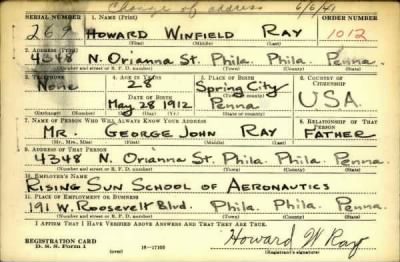 Change of address 6/6/41
SERIAL NUMBER 1. NAME (Print) ORDER NUMBER
269 HOWARD WINFIELD RAY 1012
(First) (Middle) (Last)
2. ADDRESS (Print)
4348 N. Orianna St. Phila. Phila. Penna
(Number and street or R. F. D. number) (Town) (County) (State)
3. TELEPHONE 4. AGE IN YEARS 5. PLACE OF BIRTH 6. COUNTRY OF CITIZENSHIP
None 28 Spring City
DATE OF BIRTH
May 28 1912 Penna USA
7. NAME OF PERSON WHO WILL ALWAYS KNOW YOUR ADDRESS 8. RELATIONSHIP OF THAT PERSON
MR. GEORGE JOHN RAY FATHER
(Mr., Mrs., Miss) (First) (Middle) (Last)
9. ADDRESS OF THAT PERSON
4348 N. Orianna St. Phila. Phila. Penna
(Number and street or R. F. D. number) (Town) (County) (State)
10. EMPLOYER'S NAME
RISING SUN SCHOOL OF AERONAUTICS
11. PLACE OF EMPLOYMENT OR BUSINESS
191 W. ROOSEVELT Blvd. Phila. Phila. Penna
(Number and street or R. F. D. number) (Town) (County) (State)
I AFFIRM THAT I HAVE VERIFIED ABOVE ANSWERS AND THAT THEY ARE TRUE.
REGISTRATION CARD
D. S. S. Form 1 (over) 16—17105 Howard W Ray
(Registrant's signature)